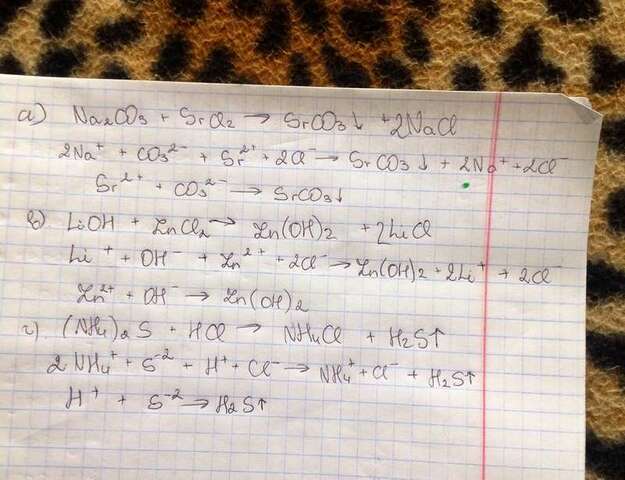 а) Na₂CO₃ + SrCl₂ → SrCO₃↓ + 2NaCl
2Na⁺ + CO₃²⁻ + Sr²⁺ + 2Cl⁻ → SrCO₃↓ + 2Na⁺ + 2Cl⁻
Sr²⁺ + CO₃²⁻ → SrCO₃↓
в) LiOH + ZnCl₂ → Zn(OH)₂ + 2LiCl
Li⁺ + OH⁻ + Zn²⁺ + 2Cl⁻ → Zn(OH)₂ + 2Li⁺ + 2Cl⁻
Zn²⁺ + OH⁻ → Zn(OH)₂
г) (NH₄)₂S + HCl → NH₄Cl + H₂S↑
2NH₄⁺ + S⁻² + H⁺ + Cl⁻ → NH₄⁺ + Cl⁻ + H₂S↑
H⁺ + S⁻² → H₂S↑